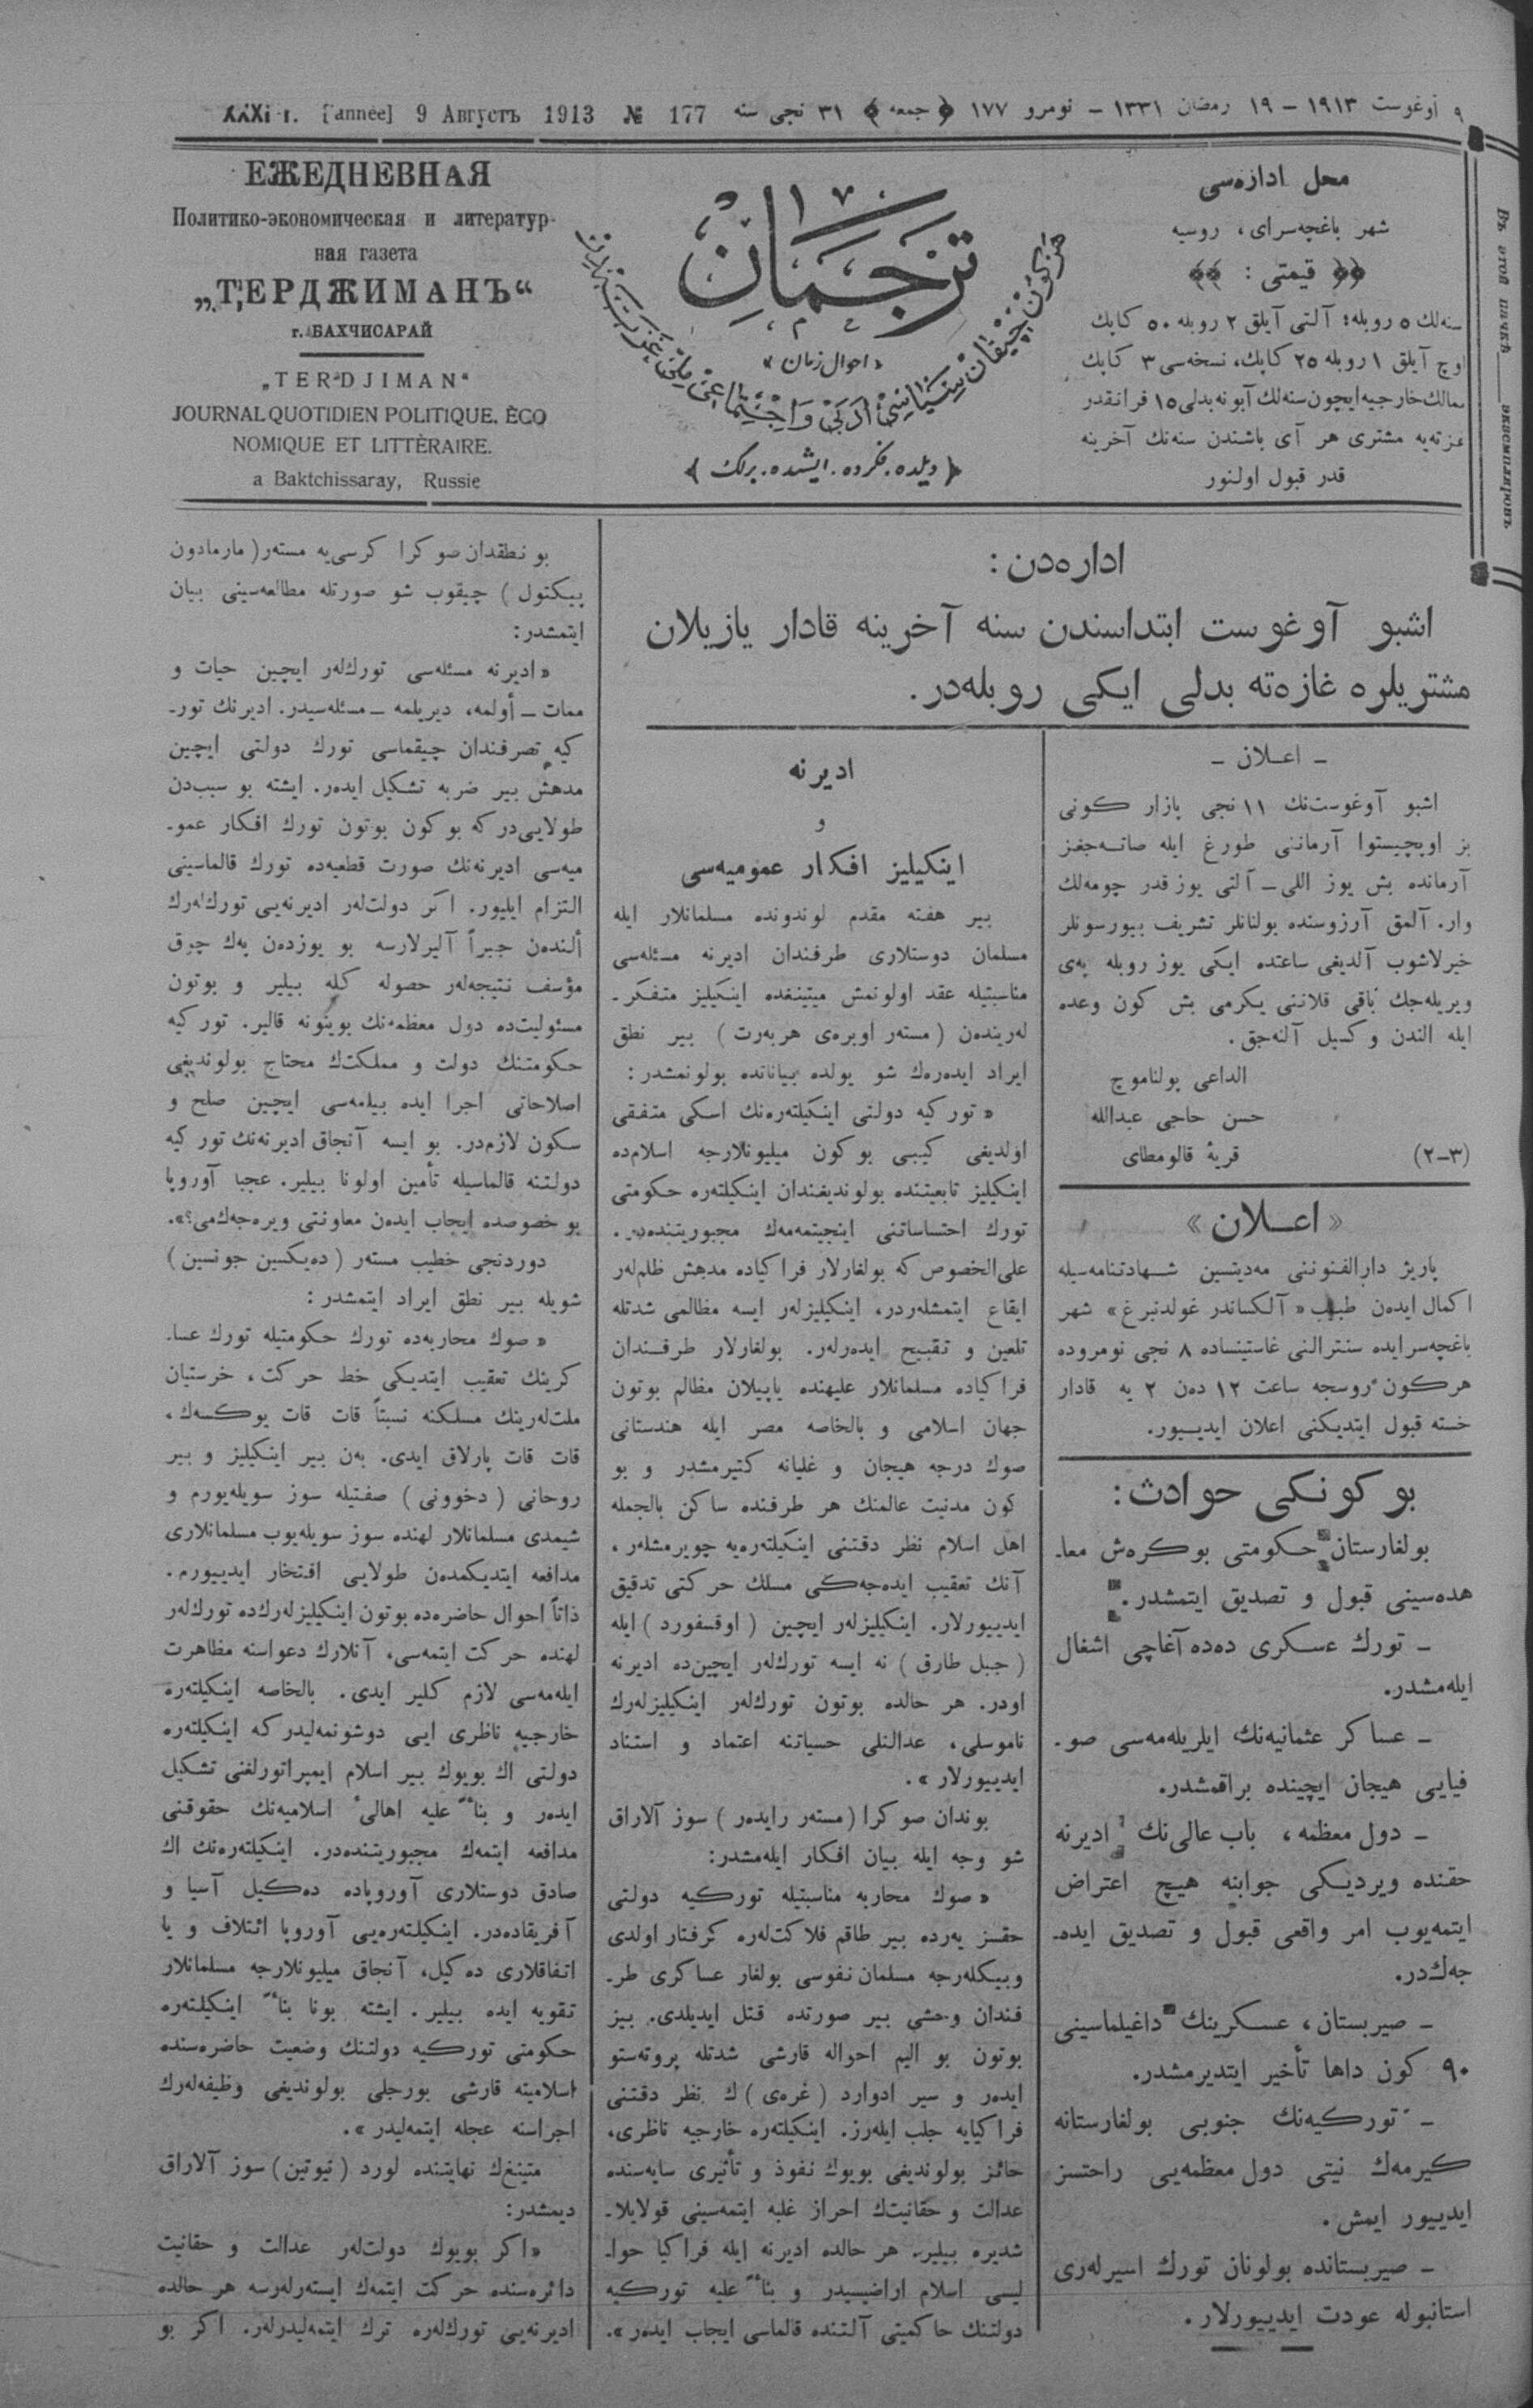 ٩ آوغوست ١٩١٣ – ١٩ رمضان ١٣٣١ – نومرو ١٧٧ ﴿ جمعه ﴾ ٣١ نجی سنه
XXXI г. [année] 9 Августъ 1913 № 177
محل اداره‌سی
شهر باغچه‌سرای، روسیه
﴿﴿ قیمتی : ﴾﴾
سنه‌لك ٥ روبله؛ آلتی آیلق ٢ روبله ٥٠ كاپك
اوچ آیلق ١ روبله ٢٥ كاپك، نسخه‌سی ٣ كاپك
ممالك خارجیه ایچون سنه‌لك آبونه بدلی ١٥ فرانقدر
غزته‌یه مشتری هر آی باشندن سنه‌نك آخرینه
قدر قبول اولنور
ترجمان
«احوال زمان»
هر كون چیقان سیاسی ادبی و اجتماعی ملی غزته
﴿ دیلده. فكرده. ایشده. برلك ﴾
ЕЖЕДНЕВНАЯ
Политико-экономическая и литератур-
ная газета
„ТЕРДЖИМАНЪ“
г. БАХЧИСАРАЙ
„TERDJIMAN“
JOURNAL QUOTIDIEN POLITIQUE. ÈCO
NOMIQUE ET LITTÈRAIRE.
a Baktchissaray, Russie
Въ этой пачкѣ экземпляровъ.
اداره‌دن :
اشبو آوغوست ابتداسندن سنه آخرینه قادار یازیلان
مشتریلره غازه‌ته بدلی ایكی روبله‌در.
– اعــلان –
اشبو آوغوست‌نك ١١ نجی پازار كونی
بز اویچیستوا آرماننی طورغ ایله صاته‌جغز
آرمانده بش یوز اللی – آلتی یوز قدر چومه‌لك
وار. آلمق آرزوسنده بولنانلر تشریف بیورسونلر
خیرلاشوب آلدیغی ساعتده ایكی یوز روبله په‌ی
ویریله‌جك باقی قلاننی یكرمی بش كون وعده
ایله الندن وكسیل آلنه‌جق.
الداعی پولناموچ
حسن حاجی عبدالله
قریهٔ قالومطای
(٣–٢)
«اعــلان»
پاریژ دارالفنوننی مه‌دیتسین شهادتنامه‌سیله
اكمال ایدەن طبیب «آلكساندر غولدنبرغ» شهر
باغچه‌سرایده سنترالنی غاستینساده ٨ نجی نومروده
هر كون روسجه ساعت ١٢ دەن ٢ یه قادار
خسته قبول ایتدیكنی اعلان ایدییور.
بو كونكی حوادث :
بولغارستان حكومتی بوكرەش معا-
هده‌سینی قبول و تصدیق ایتمشدر.
– تورك عسكری دەدە آغاچی اشغال
ایله‌مشدر.
– عساكر عثمانیه‌نك ایلریله‌مه‌سی صو-
فیایی هیجان ایچینده براقمشدر.
– دول معظمه، باب عالی‌نك ادیرنه
حقنده ویردیكی جوابنه هیچ اعتراض
ایتمه‌یوب امر واقعی قبول و تصدیق ایده-
جه‌كدر.
– صیربستان، عسكرینك داغیلماسینی
٩٠ كون داها تأخیر ایتدیرمشدر.
– توركیه‌نك جنوبی بولغارستانه
كیرمه‌ك نیتی دول معظمه‌یی راحتسز
ایدییور ایمش.
– صیربستانده بولونان تورك اسیرله‌ری
استانبوله عودت ایدییورلار.
ادیرنه
و
اینكیلیز افكار عمومیه‌سی
بیر هفته مقدم لوندونده مسلمانلار ایله
مسلمان دوستلاری طرفندان ادیرنه مسئله‌سی
مناسبتیله عقد اولونمش میتینغده اینكیلیز متفكر-
له‌رینده‌ن (مستەر اوبره‌ی هربه‌رت) بیر نطق
ایراد ایدەرەك شو یولده بیاناتده بولونمشدر :
«توركیه دولتی اینكیلته‌رەنك اسكی متفقی
اولدیغی كیبی بوكون میلیونلارجه اسلام‌ده
اینكیلیز تابعیتنده بولوندیغندان اینكیلته‌رە حكومتی
تورك احتساساتنی اینجیتمه‌مه‌ك مجبوریتنده‌در.
علی‌الخصوص كه بولغارلار فراكیاده مدهش ظلمله‌ر
ایقاع ایتمشله‌ردر، اینكیلیزله‌ر ایسه مظالمی شدتله
تلعین و تقبیح ایدەرلەر. بولغارلار طرفندان
فراكیاده مسلمانلار علیهنده یاپیلان مظالم بوتون
جهان اسلامی و بالخاصه مصر ایله هندستانی
صوك درجه هیجان و غلیانه كتیرمشدر و بو
كون مدنیت عالمنك هر طرفنده ساكن بالجمله
اهل اسلام نظر دقتنی اینكیلته‌رەیه چویرمشله‌ر،
آنك تعقیب ایده‌جه‌كی مسلك حركتی تدقیق
ایدییورلار. اینكیلیزله‌ر ایچین (اوقسفورد) ایله
(جبل طارق) نه ایسه توركله‌ر ایچین‌ده ادیرنه
اودر. هر حالده بوتون توركله‌ر اینكیلیزله‌رك
ناموسلی، عدالتلی حسیاتنه اعتماد و استناد
ایدییورلار».
بوندان صوكرا (مستەر رایدەر) سوز آلاراق
شو وجه ایله بیان افكار ایله‌مشدر :
«صوك محاربه مناسبتیله توركیه دولتی
حقسز یەردە بیر طاقم فلاكت‌لەرە كرفتار اولدی
وبیكله‌رجه مسلمان نفوسی بولغار عساكری طر-
فندان وحشی بیر صورتده قتل ایدیلدی. بیز
بوتون بو الیم احواله قارشی شدتله پروته‌ستو
ایدەر و سیر ادوارد (غره‌ی)ك نظر دقتنی
فراكیایه جلب ایله‌رز. اینكیلته‌رە خارجیه ناظری،
حائز بولوندیغی بویوك نفوذ و تأثیری سایه‌سنده
عدالت و حقانیتك احراز غلبه ایتمه‌سینی قولایلا-
شدیرە بیلیر. هر حالده ادیرنه ایله فراكیا حوا-
لیسی اسلام اراضیسیدر و بناءً علیه توركیه
دولتنك حاكمیتی آلتنده قالماسی ایجاب ایدەر».
بو نطقدان صوكرا كرسی‌یه مستەر (مارمادون
پیكتول) چیقوب شو صورتله مطالعه‌سینی بیان
ایتمشدر :
«ادیرنه مسئله‌سی تورك‌لەر ایچین حیات و
ممات – أولمه، دیریلمه – مسئله‌سیدر. ادیرنك تور-
كیه تصرفندان چیقماسی تورك دولتی ایچین
مدهش بیر ضربه تشكیل ایدەر. ایشته بو سبب‌دن
طولایی‌دركه بوكون بوتون تورك افكار عمو-
میه‌سی ادیرنه‌نك صورت قطعیه‌ده تورك قالماسینی
التزام ایلیور. اكر دولت‌لەر ادیرنه‌یی تورك‌لەرك
ألندەن جبراً آلیرلارسه بو یوزدەن پەك چوق
مؤسف نتیجه‌لەر حصوله كله بیلیر و بوتون
مسئولیت‌ده دول معظمه‌نك بوینونه قالیر. توركیه
حكومتنك دولت و مملكت‌ك محتاج بولوندیغی
اصلاحاتی اجرا ایده بیلمه‌سی ایچین صلح و
سكون لازم‌در. بو ایسه آنجاق ادیرنه‌نك توركیه
دولتنه قالماسیله تأمین اولونا بیلیر. عجبا آوروپا
بو خصوصده ایجاب ایدەن معاونتی ویره‌جه‌ك‌می؟».
دوردنجی خطیب مستەر (دەیكسین جونسین)
شویله بیر نطق ایراد ایتمشدر :
«صوك محاربه‌ده تورك حكومتیله تورك عسا-
كرینك تعقیب ایتدیكی خط حركت، خرستیان
ملت‌لەرینك مسلكنه نسبتاً قات قات یوكسه‌ك،
قات قات پارلاق ایدی. بەن بیر اینكیلیز و بیر
روحانی (دخوونی) صفتیله سوز سویله‌یورم و
شیمدی مسلمانلار لهنده سوز سویله‌یوب مسلمانلاری
مدافعه ایتدیكمدەن طولایی افتخار ایدییورم.
ذاتاً احوال حاضره‌ده بوتون اینكیلیزله‌رك‌ده تورك‌لەر
لهنده حركت ایتمه‌سی، آنلارك دعواسنه مظاهرت
ایله‌مه‌سی لازم كلیر ایدی. بالخاصه اینكیلته‌رە
خارجیه ناظری ایی دوشونمه‌لیدركه اینكیلته‌رە
دولتی اك بویوك بیر اسلام ایمپراتورلغنی تشكیل
ایدەر و بناءً علیه اهالیٔ اسلامیه‌نك حقوقنی
مدافعه ایتمه‌ك مجبوریتنده‌در. اینكیلته‌رەنك اك
صادق دوستلاری آوروپاده ده‌كیل آسیا و
آفریقاده‌در. اینكیلته‌رەیی آوروپا ائتلاف و یا
اتفاقلاری ده‌كیل، آنجاق میلیونلارجه مسلمانلار
تقویه ایده بیلیر. ایشته بونا بناءً اینكیلته‌رە
حكومتی توركیه دولتنك وضعیت حاضره‌سنده
اسلامیته قارشی بورجلی بولوندیغی وظیفه‌لەرك
اجراسنه عجله ایتمه‌لیدر».
متینغك نهایتنده لورد (نیوتین) سوز آلاراق
دیمشدر :
«اكر بویوك دولت‌لەر عدالت و حقانیت
دائره‌سنده حركت ایتمه‌ك ایسته‌رلەرسه هر حالده
ادیرنه‌یی تورك‌لەرە ترك ایتمه‌لیدرلەر. اكر بو